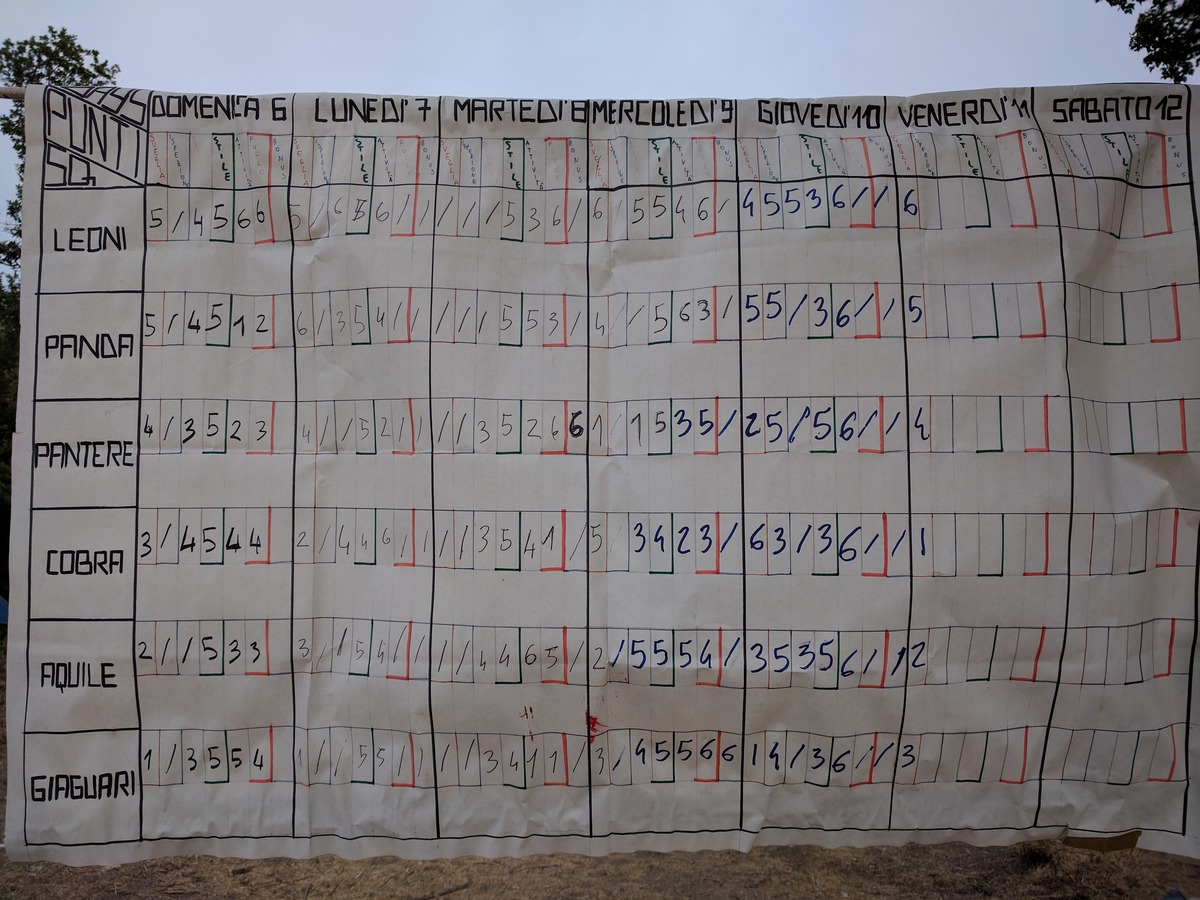 PUNTI
SQ.
DOMENICA 6 LUNEDI' 7 MARTEDI' 8 MERCOLEDI' 9 GIOVEDI' 10 VENERDI' 11 SABATO 12
STILE BONUS STILE STILE BONUS STILE BONUS STILE BONUS STILE BONUS STILE BONUS
LEONI 5 / 4 5 6 6 5 / 6 5 6 / / / / / 5 3 6 / 6 / 5 5 4 6 / 4 5 5 3 6 / / 6
PANDA 5 / 4 5 1 2 6 / 3 5 4 / / / / / 5 5 3 / 4 / / 5 6 3 / 5 5 / 3 6 / / 5
PANTERE 4 / 3 5 2 3 4 / / 5 2 / / / / 3 5 2 6 6 1 / 1 5 3 5 / 2 5 / 5 6 / / 4
COBRA 3 / 4 5 4 4 2 / 4 4 6 / / / / 3 5 4 1 / 5 3 4 2 3 / 6 3 / 3 6 / / 1
AQUILE 2 / / 5 3 3 3 / / 5 4 / / / / 4 4 6 5 / 2 / 5 5 5 4 / 3 5 3 5 6 / / 2
GIAGUARI 1 / 3 5 5 4 1 / / 5 5 / / / / 3 4 1 1 / 3 / 4 5 5 6 6 1 4 / 3 6 / / 3